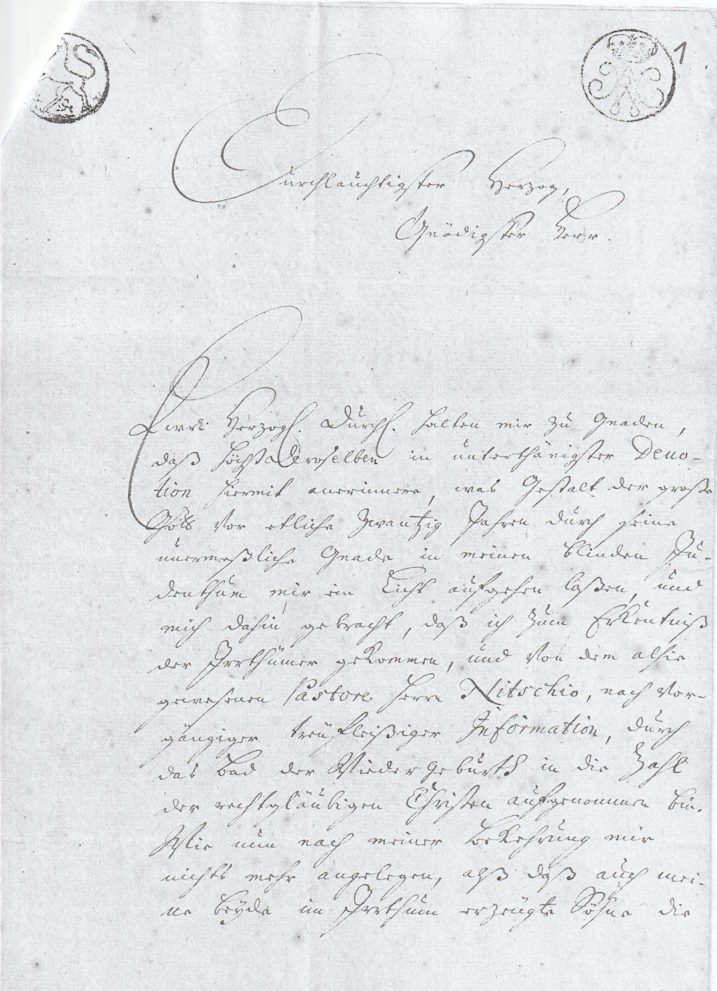 1
Durchlauchtigster Herzog,
Gnädigster Herr.
Ewr: Herzogl. Durchl. halten mir zu Gnaden,
daß höchst Deroselben in unterthänigster Devo-
tion hiermit anerinnere, was Gestalt der große
Gott vor etliche zwantzig Jahren durch seine
unermeßliche Gnade in meinen blinden Ju-
denthum mir ein Licht aufgehen laßen, und
mich dahin gebracht, daß ich zum Erkentniß
der Irrthümer gekommen, und von dem alhie
gewesenen Pastore Herrn Nitschio, nach vor-
gängiger treüfleißiger Information, durch
das Bad der Wiedergeburth in die Zahl
der rechtgläubigen Christen aufgenommen bin.
Wie nun nach meiner Bekehrung mir
nichts mehr angelegen, alß daß auch mei-
ne beyde im Irrthum erzeügte Söhne die